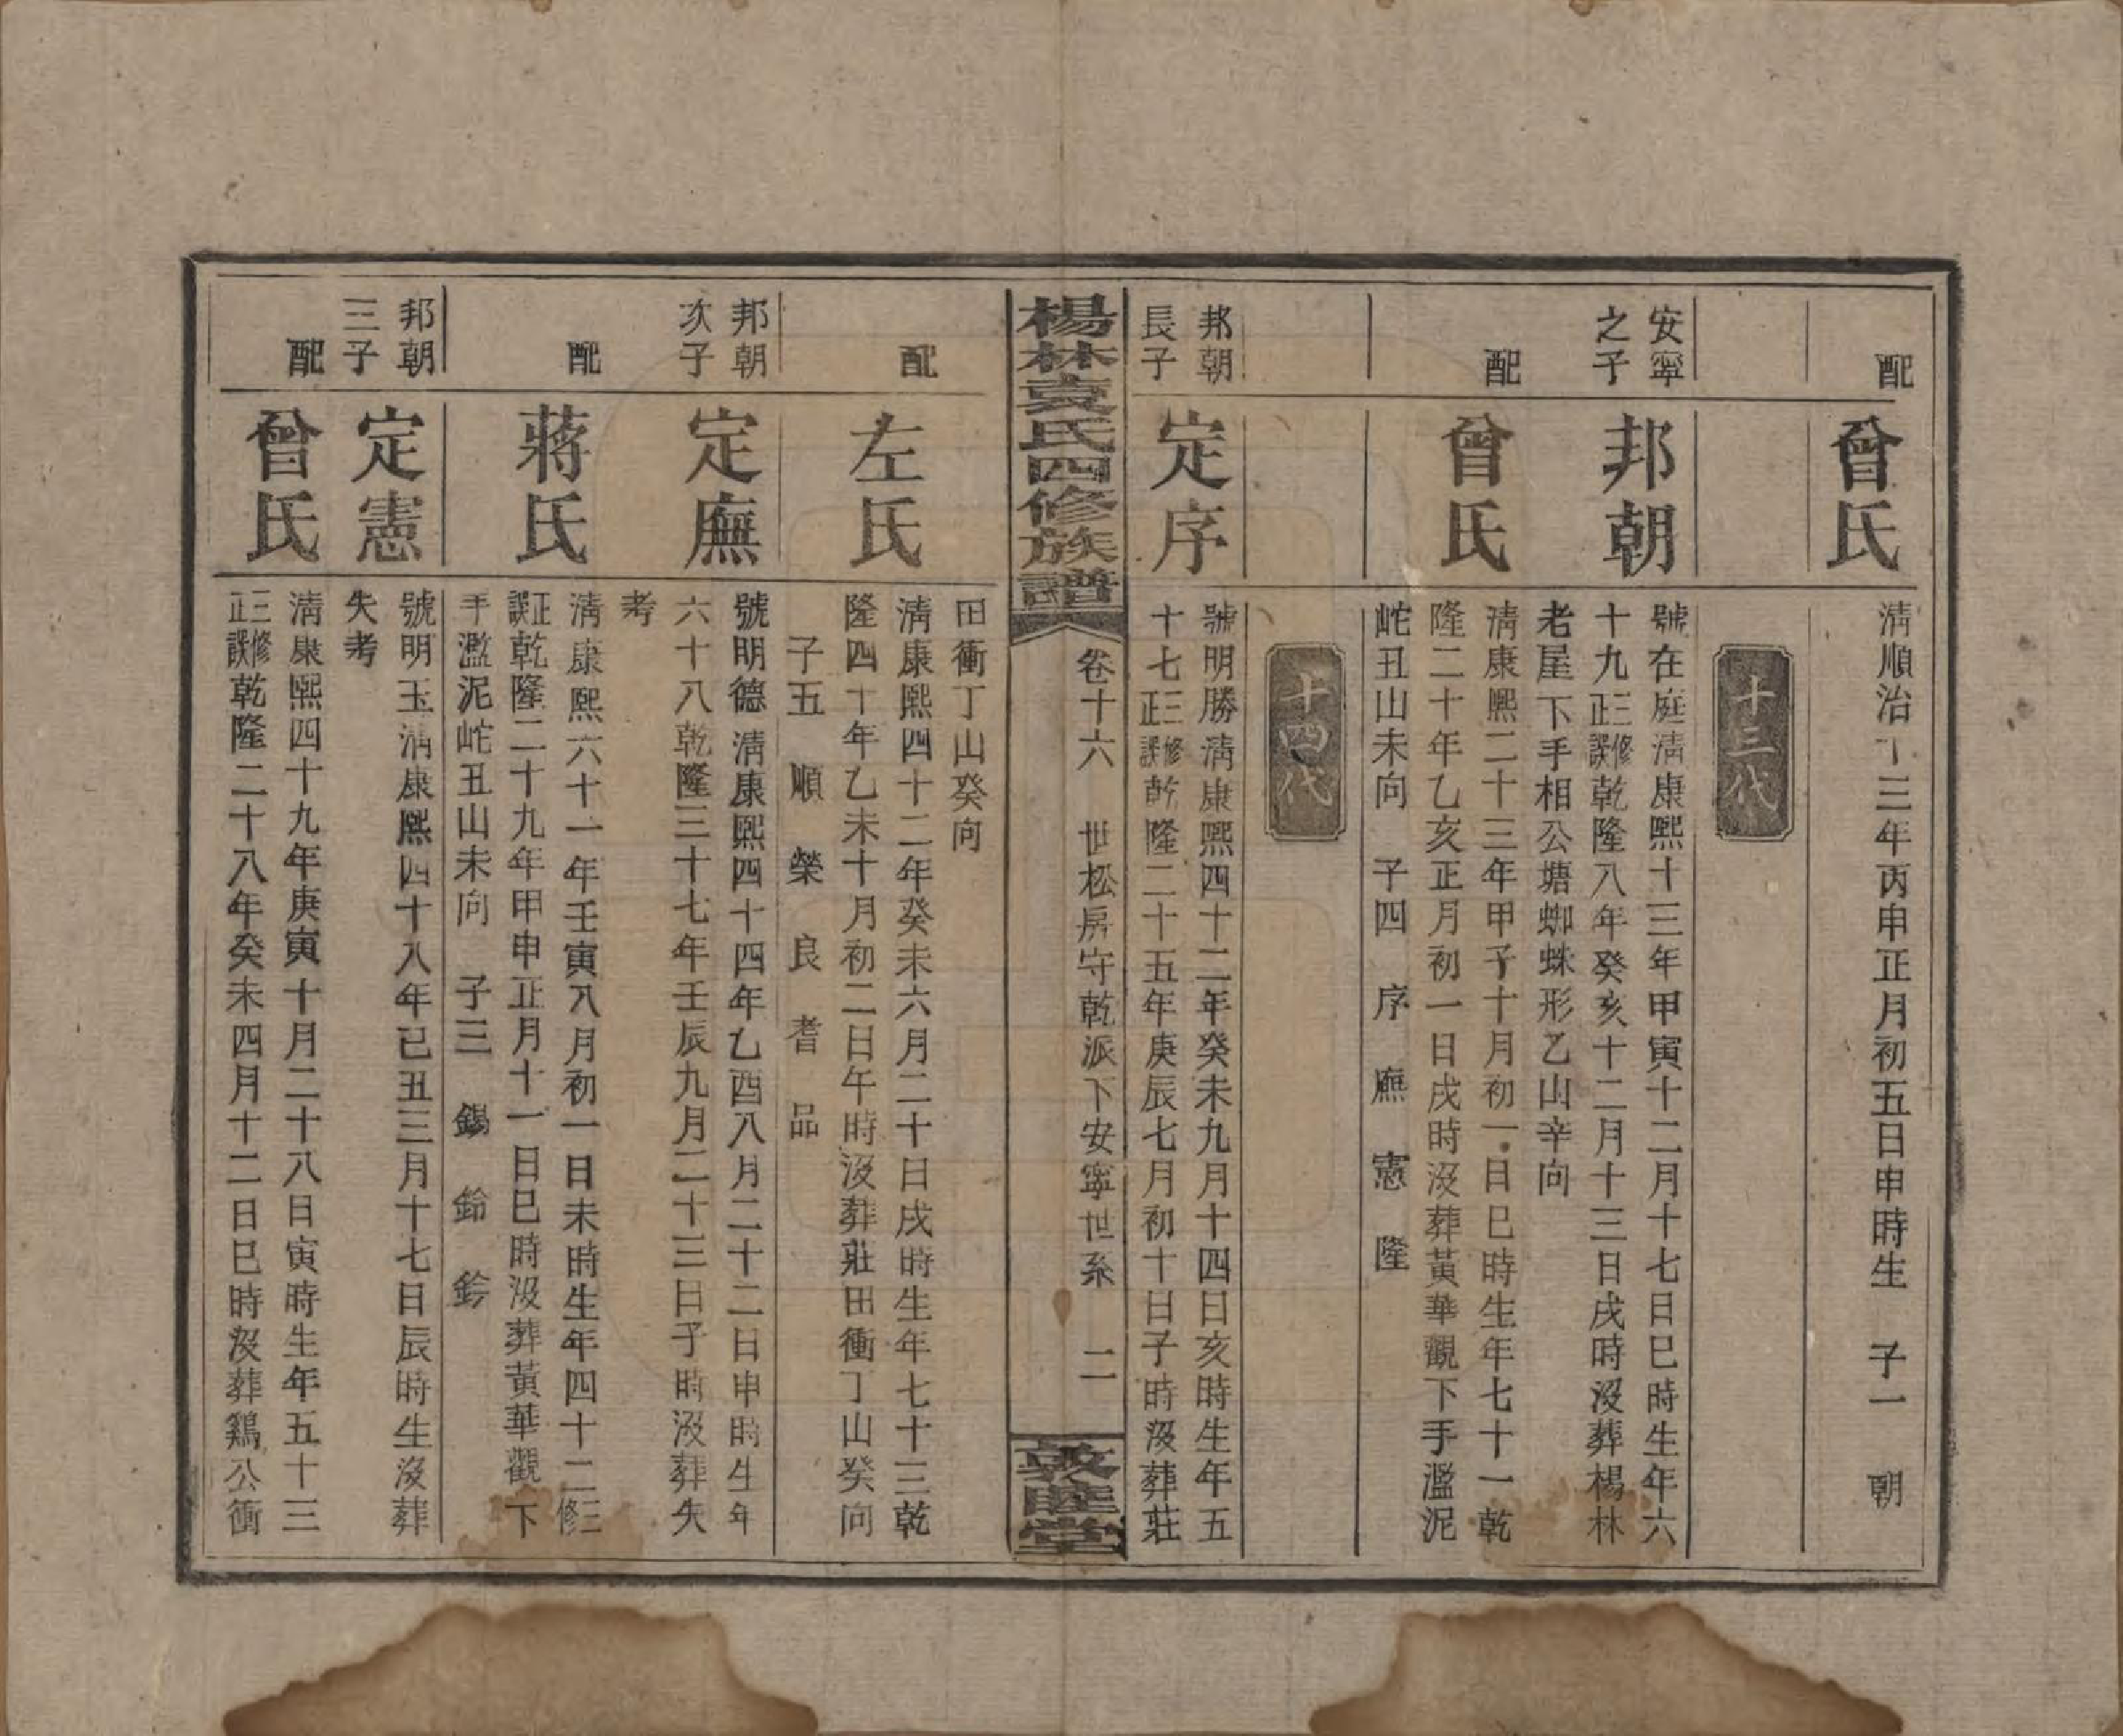 配
曾氏
清順治十三年丙申正月初五日申時生　子一　朝
十三代
安寧
之子
邦朝
號在庭清康熙十三年甲寅十二月十七日巳時生年六
十九三修正誤乾隆八年癸亥十二月十三日戌時沒葬楊林
老屋下手相公塘蜘蛛形乙山辛向
配
曾氏
清康熙二十三年甲子十月初一日巳時生年七十一乾
隆二十年乙亥正月初一日戌時沒葬黃華觀下手濫泥
䖳丑山未向　子四　序　廡　憲　隆
十四代
邦朝
長子
定序
號明勝清康熙四十二年癸未九月十四日亥時生年五
十七三修正誤乾隆二十五年庚辰七月初十日子時沒葬莊
楊林袁氏四修族譜
卷十六　世松房守乾派下安寧世系　二
敦睦堂
田衝丁山癸向
配
左氏
清康熙四十二年癸未六月二十日戌時生年七十三乾
隆四十年乙未十月初二日午時沒葬莊田衝丁山癸向
子五　順　榮　良　耆　品
邦朝
次子
定廡
號明德清康熙四十四年乙酉八月二十二日申時生年
六十八乾隆三十七年壬辰九月二十三日子時沒葬失
考
配
蔣氏
清康熙六十一年壬寅八月初一日未時生年四十二三修
正誤乾隆二十九年甲申正月十一日巳時沒葬黃華觀下
手濫泥䖳丑山未向　子三　錫　鈴　鈐
邦朝
三子
定憲
號明玉清康熙四十八年己丑三月十七日辰時生沒葬
失考
配
曾氏
清康熙四十九年庚寅十月二十八日寅時生年五十三
三修正誤乾隆二十八年癸未四月十二日巳時沒葬鷄公衝